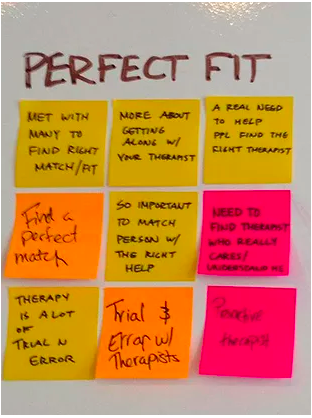 PERFECT FIT
MET WITH
MANY TO
FIND RIGHT
MATCH/FIT
MORE ABOUT
GETTING
ALONG W/
YOUR THERAPIST
A REAL NEED
TO HELP
PPL FIND THE
RIGHT THERAPIST
Find a
perfect
match
SO IMPORTANT
TO MATCH
PERSON W/
THE RIGHT
HELP
NEED TO
FIND THERAPIST
WHO REALLY
CARES/
UNDERSTAND ME
THERAPY
IS A LOT
OF
TRIAL N
ERROR
Trial &
Error w/
Therapists
therapist